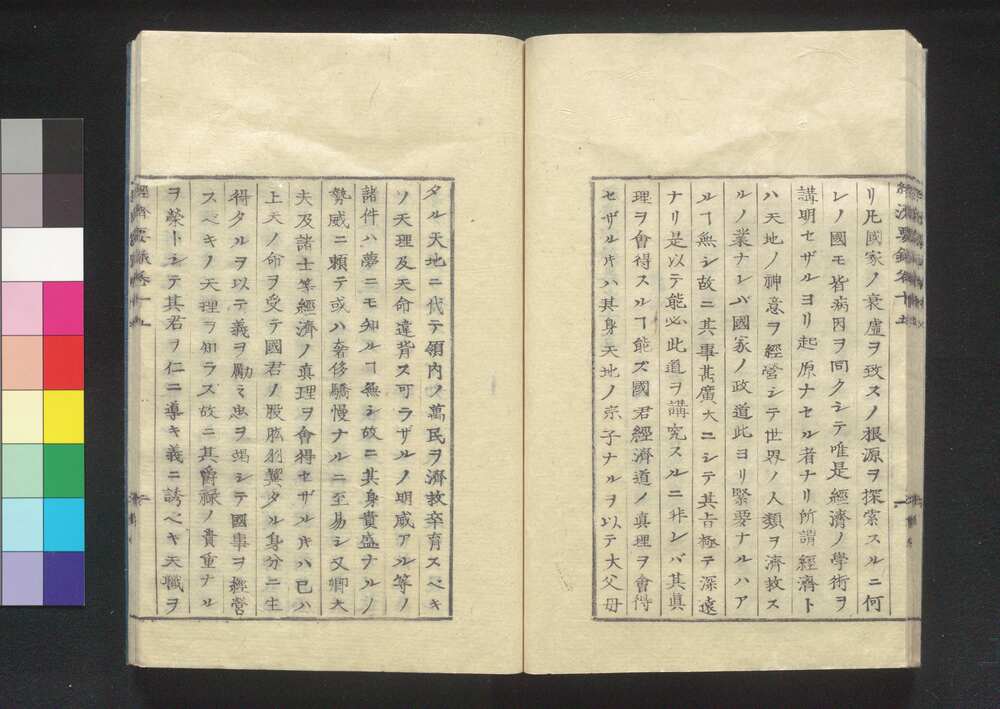 リ凡國家ノ衰虚ヲ致スノ根源ヲ探索スルニ何
レノ國モ皆病因ヲ同クシテ唯是經濟ノ學術ヲ
講明セザルヨリ起原ナセル者ナリ所謂經濟ト
ハ天地ノ神意ヲ經營シテ世界ノ人類ヲ濟救ス
ルノ業ナレバ國家ノ政道此ヨリ緊要ナルハア
ルヿ無シ故ニ其事甚廣大ニシテ其旨極テ深遠
ナリ是以テ能必此道ヲ講究スルニ非レバ其眞
理ヲ會得スルヿ能ズ國君經濟道ノ真理ヲ會得
セザル片ハ其身天地ノ宗子ナルヲ以テ大父母
タル天地ニ代テ領内ノ萬民ヲ濟救卒育スベキ
ノ天理及天命違背ス可ラザルノ明威アル等ノ
諸件ハ夢ニモ知ルヿ無シ故ニ其身貴盛ナルノ
勢威ニ頼テ或ハ奢侈驕慢ナルニ至易シ又卿大
夫及諸士等經濟ノ真理ヲ會得セザル片ハ已ハ
上天ノ命ヲ受テ國君ノ股肱羽翼タル身分ニ生
得タルヲ以テ義ヲ勵ミ忠ヲ竭シテ國事ヲ經營
スベキノ天理ヲ知ラズ故ニ其爵禄ノ貴重ナル
ヲ榮トシテ其君ヲ仁ニ導キ義ニ誘ベキ天職ヲ